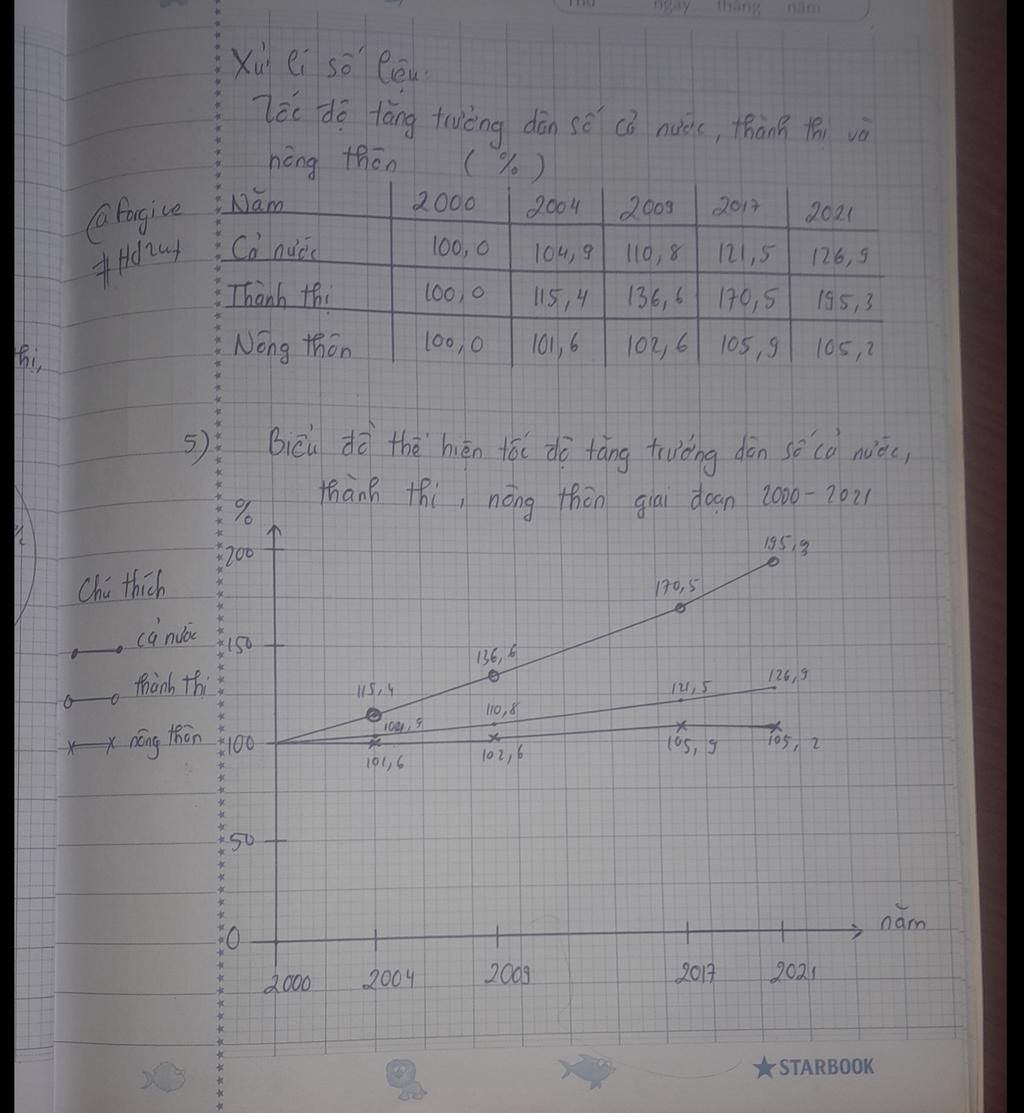 Thứ ngày tháng năm
Xử lí số liệu.
Tốc độ tăng trưởng dân số cả nước, thành thị và
nông thôn (%)
@forgive
#Hd247
Năm 2000 2004 2009 2017 2021
Cả nước 100,0 104,9 110,8 121,5 126,9
Thành thị 100,0 115,4 136,6 170,5 195,3
Nông thôn 100,0 101,6 102,6 105,9 105,2
thị,
5) Biểu đồ thể hiện tốc độ tăng trưởng dân số cả nước,
thành thị, nông thôn giai đoạn 2000-2021
%
200
195,3
Chú thích
170,5
cả nước
150
136,6
thành thị
115,4
126,9
121,5
110,8
104,9
nông thôn
100
101,6
102,6
105,9
105,2
50
0
năm
2000 2004 2009 2017 2021
STARBOOK